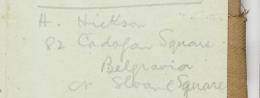 H. Hickson
82 Cadogan Square
Belgravia
Sloane Square